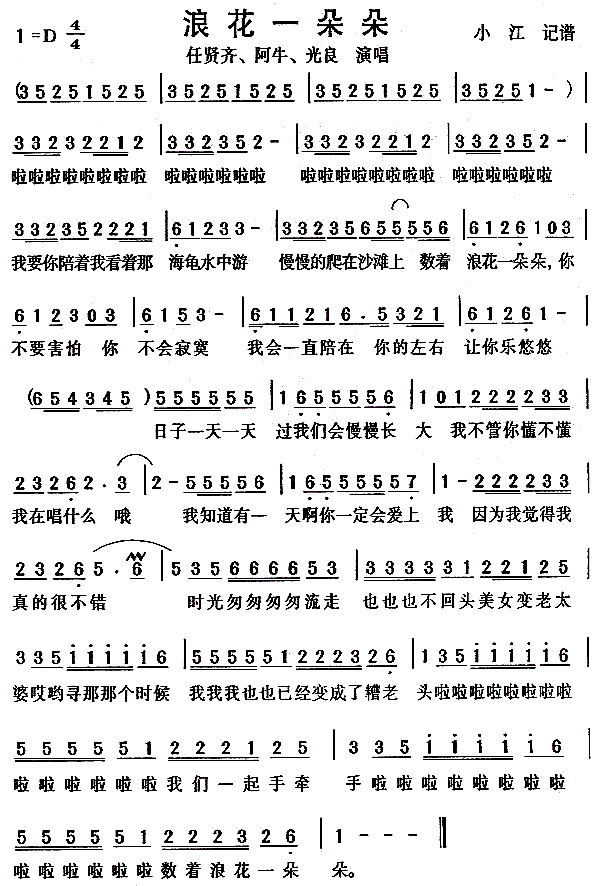 浪花一朵朵
1=D 4/4
小江 记谱
任贤齐、阿牛、光良 演唱
(35251525 | 35251525 | 35251525 | 35251-)
33232212 | 332352- | 33232212 | 332352-
啦啦啦啦啦啦啦啦 啦啦啦啦啦啦 啦啦啦啦啦啦啦啦 啦啦啦啦啦啦
332352221 | 61233- | 332356555556 | 6126103
我要你陪着我看着那 海龟水中游 慢慢的爬在沙滩上 数着 浪花一朵朵,你
612303 | 6153- | 611216.5321 | 6126-
不要害怕 你 不会寂寞 我会一直陪在 你的左右 让你乐悠悠
(654345) 555555 | 16555556 | 101222233
日子一天一天 过我们会慢慢长 大 我不管你懂不懂
23262.3 | 2-55556 | 165555557 | 1-122233
我在唱什么 哦 我知道有一 天啊你一定会爱上 我 因为我觉得我
23265.6 | 5356666653 | 3333312212 5
真的很不错 时光匆匆匆匆流走 也也也不回头美女变老太
3351111116 | 5555512223226 | 13511111116
婆哎哟寻那那个时候 我我我也也已经变成了糟老 头啦啦啦啦啦啦啦啦
5555512221225 | 33511116
啦啦啦啦啦啦我们一起手牵 手啦啦啦啦啦啦啦啦
555551222326 | 1---
啦啦啦啦啦啦数着浪花一朵 朵。